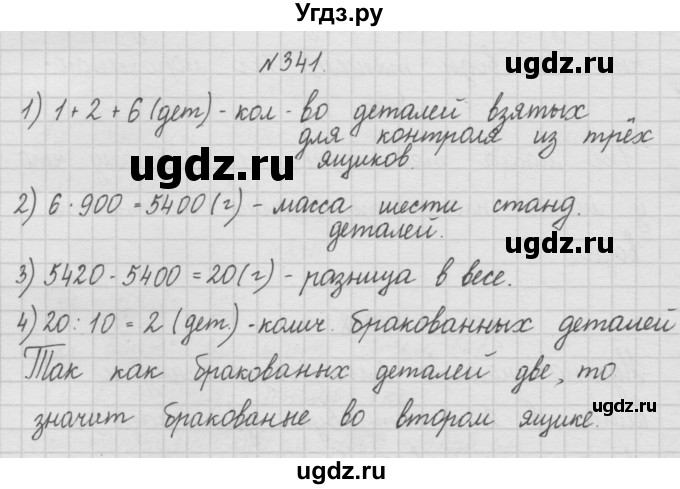 Угдз.ру
№341.
ugdz.ru
1) 1+2+6 (дет) - кол-во деталей взятых
для контроля из трёх
ugdz.ru
ящиков.
2) 6·900 = 5400 (г) - масса шести станд.
деталей.
ugdz.ru
3) 5420-5400 = 20 (г) - разница в весе.
4) 20:10 = 2 (дет.) - колич. бракованных деталей
ugdz.ru
Так как бракованых деталей две, то
значит бракованые во втором ящике.
ugdz.ru
ugdz.ru